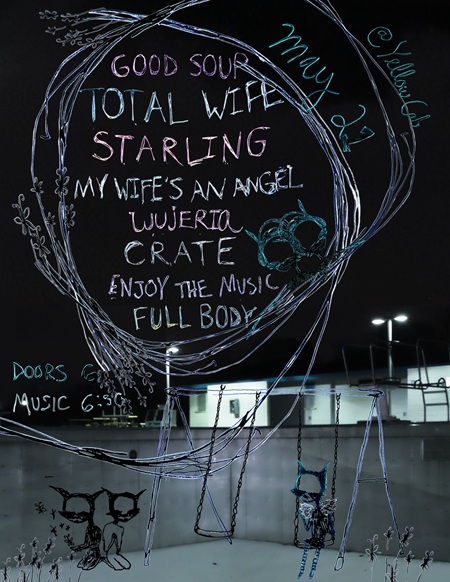 GOOD SOUR
TOTAL WIFE
STARLING
MY WIFE'S AN ANGEL
WUJERIA
CRATE
ENJOY THE MUSIC
FULL BODY
MAY 27
@YellowCab
DOORS 6
MUSIC 6:30